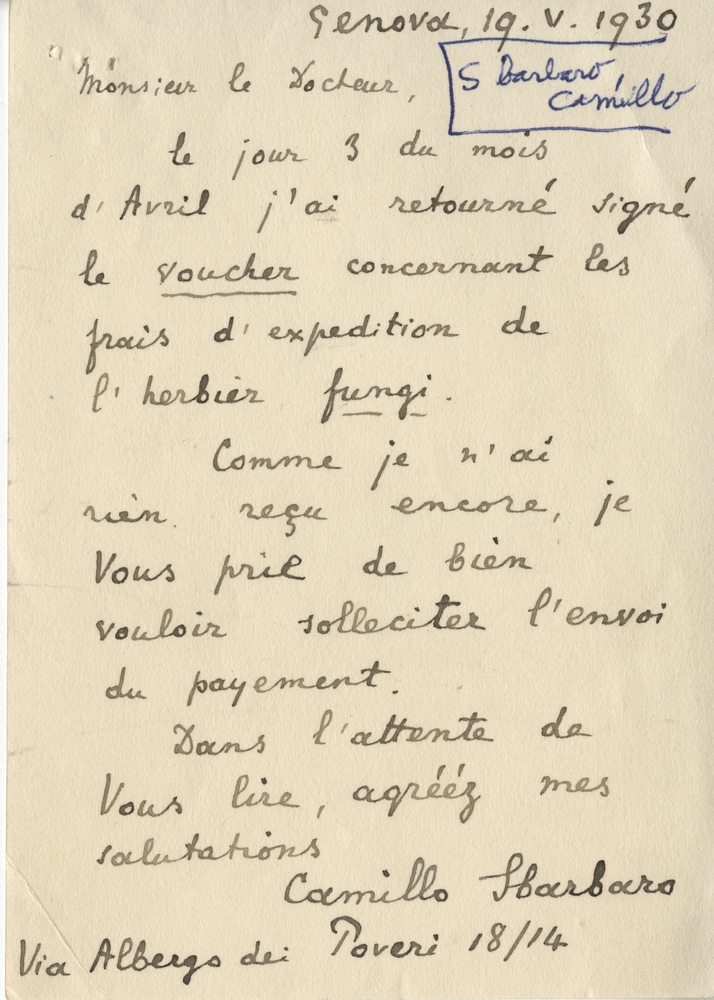 Genova, 19. V. 1930
Sbarbaro,
Camillo
Monsieur le Docteur,
le jour 3 du mois
d'Avril j'ai retourné signé
le voucher concernant les
frais d'expedition de
l'herbier fungi.
Comme je n'ai
rièn reçu encore, je
Vous prie de bièn
vouloir solleciter l'envoi
du payement.
Dans l'attente de
Vous lire, agrééz mes
salutations
Camillo Sbarbaro
Via Albergo dei Poveri 18/14